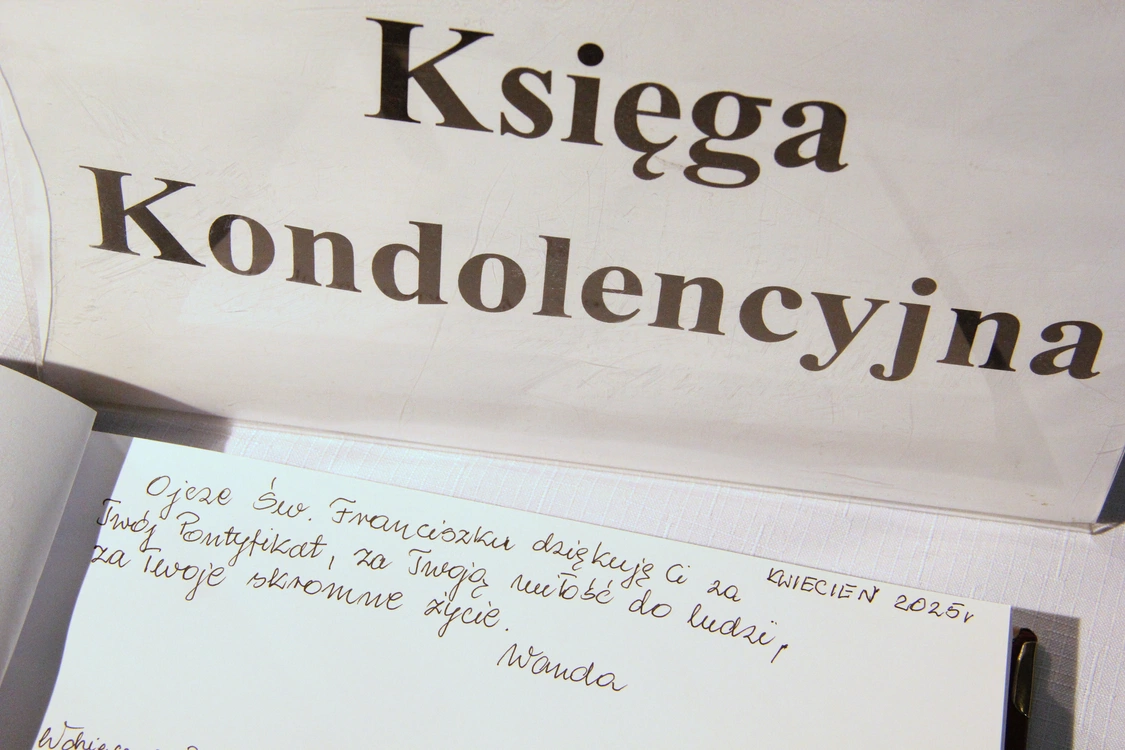 Księga
Kondolencyjna
KWIECIEŃ 2025r
Ojcze Św. Franciszku dziękuję Ci za
Twój Pontyfikat, za Twoją miłość do ludzi,
za Twoje skromne życie.
Wanda